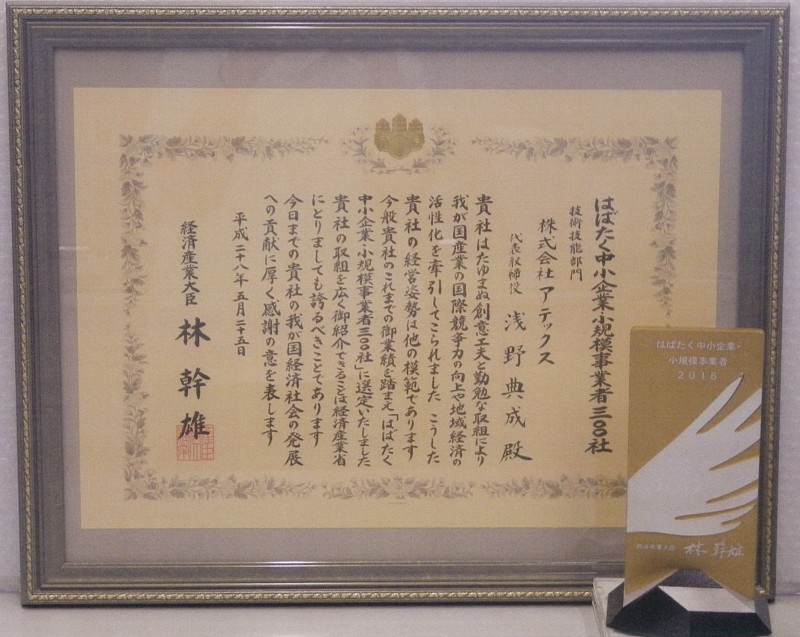 はばたく中小企業小規模事業者三〇〇社
技術技能部門
株式会社アテックス
代表取締役 浅野典成殿
貴社はたゆまぬ創意工夫と勤勉な取組により
我が国産業の国際競争力の向上や地域経済の
活性化を牽引してこられました こうした
貴社の経営姿勢は他の模範であります
今般貴社のこれまでの御業績を踏まえ「はばたく
中小企業小規模事業者三〇〇社」に選定いたしました
貴社の取組を広く御紹介できることは経済産業省
にとりましても誇るべきことであります
今日までの貴社の我が国経済社会の発展
への貢献に厚く感謝の意を表します
平成二十八年五月二十五日
経済産業大臣 林幹雄
はばたく中小企業・
小規模事業者
2016
経済産業大臣 林幹雄